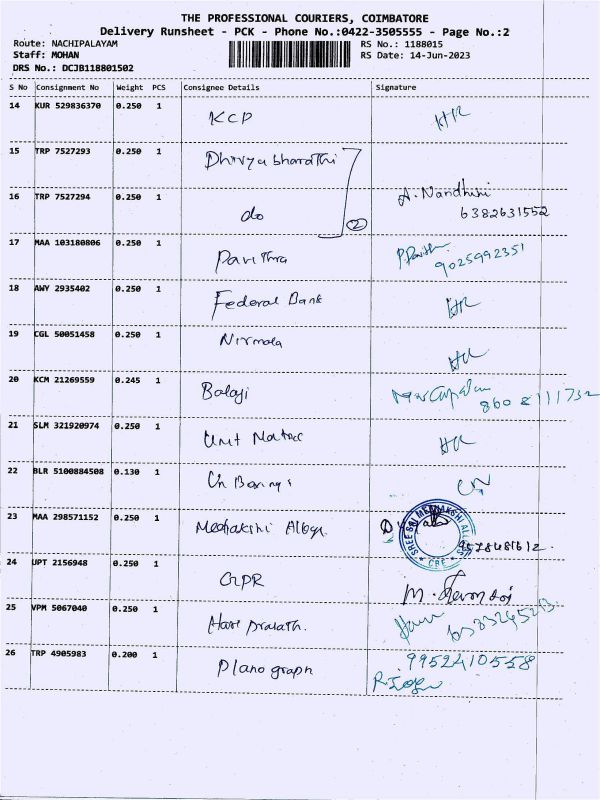 THE PROFESSIONAL COURIERS, COIMBATORE
Delivery Runsheet - PCK - Phone No.:0422-3505555 - Page No.:2
Route: NACHIPALAYAM
RS No.: 1188015
Staff: MOHAN
RS Date: 14-Jun-2023
DRS No.: DCJB118801502
S No Consignment No Weight PCS Consignee Details Signature
14 KUR 529836370 0.250 1 KCP
15 TRP 7527293 0.250 1 Dhivya bharathi
16 TRP 7527294 0.250 1 do 2 A. Nandhini
6382631552
17 MAA 103180806 0.250 1 Pavithra
9025992351
18 AWY 2935402 0.250 1 Federal Bank
19 CGL 50051458 0.250 1 Nirmala
20 KCM 21269559 0.245 1 Balaji
21 SLM 321920974 0.250 1
22 BLR 5100884508 0.130 1
23 MAA 298571152 0.250 1 SREE SRI MEENAKSHI ALLOYS
CBE
24 UPT 2156948 0.250 1
25 VPM 5067040 0.250 1 Hari prasath.
26 TRP 4905983 0.200 1 Planograph 9952410558